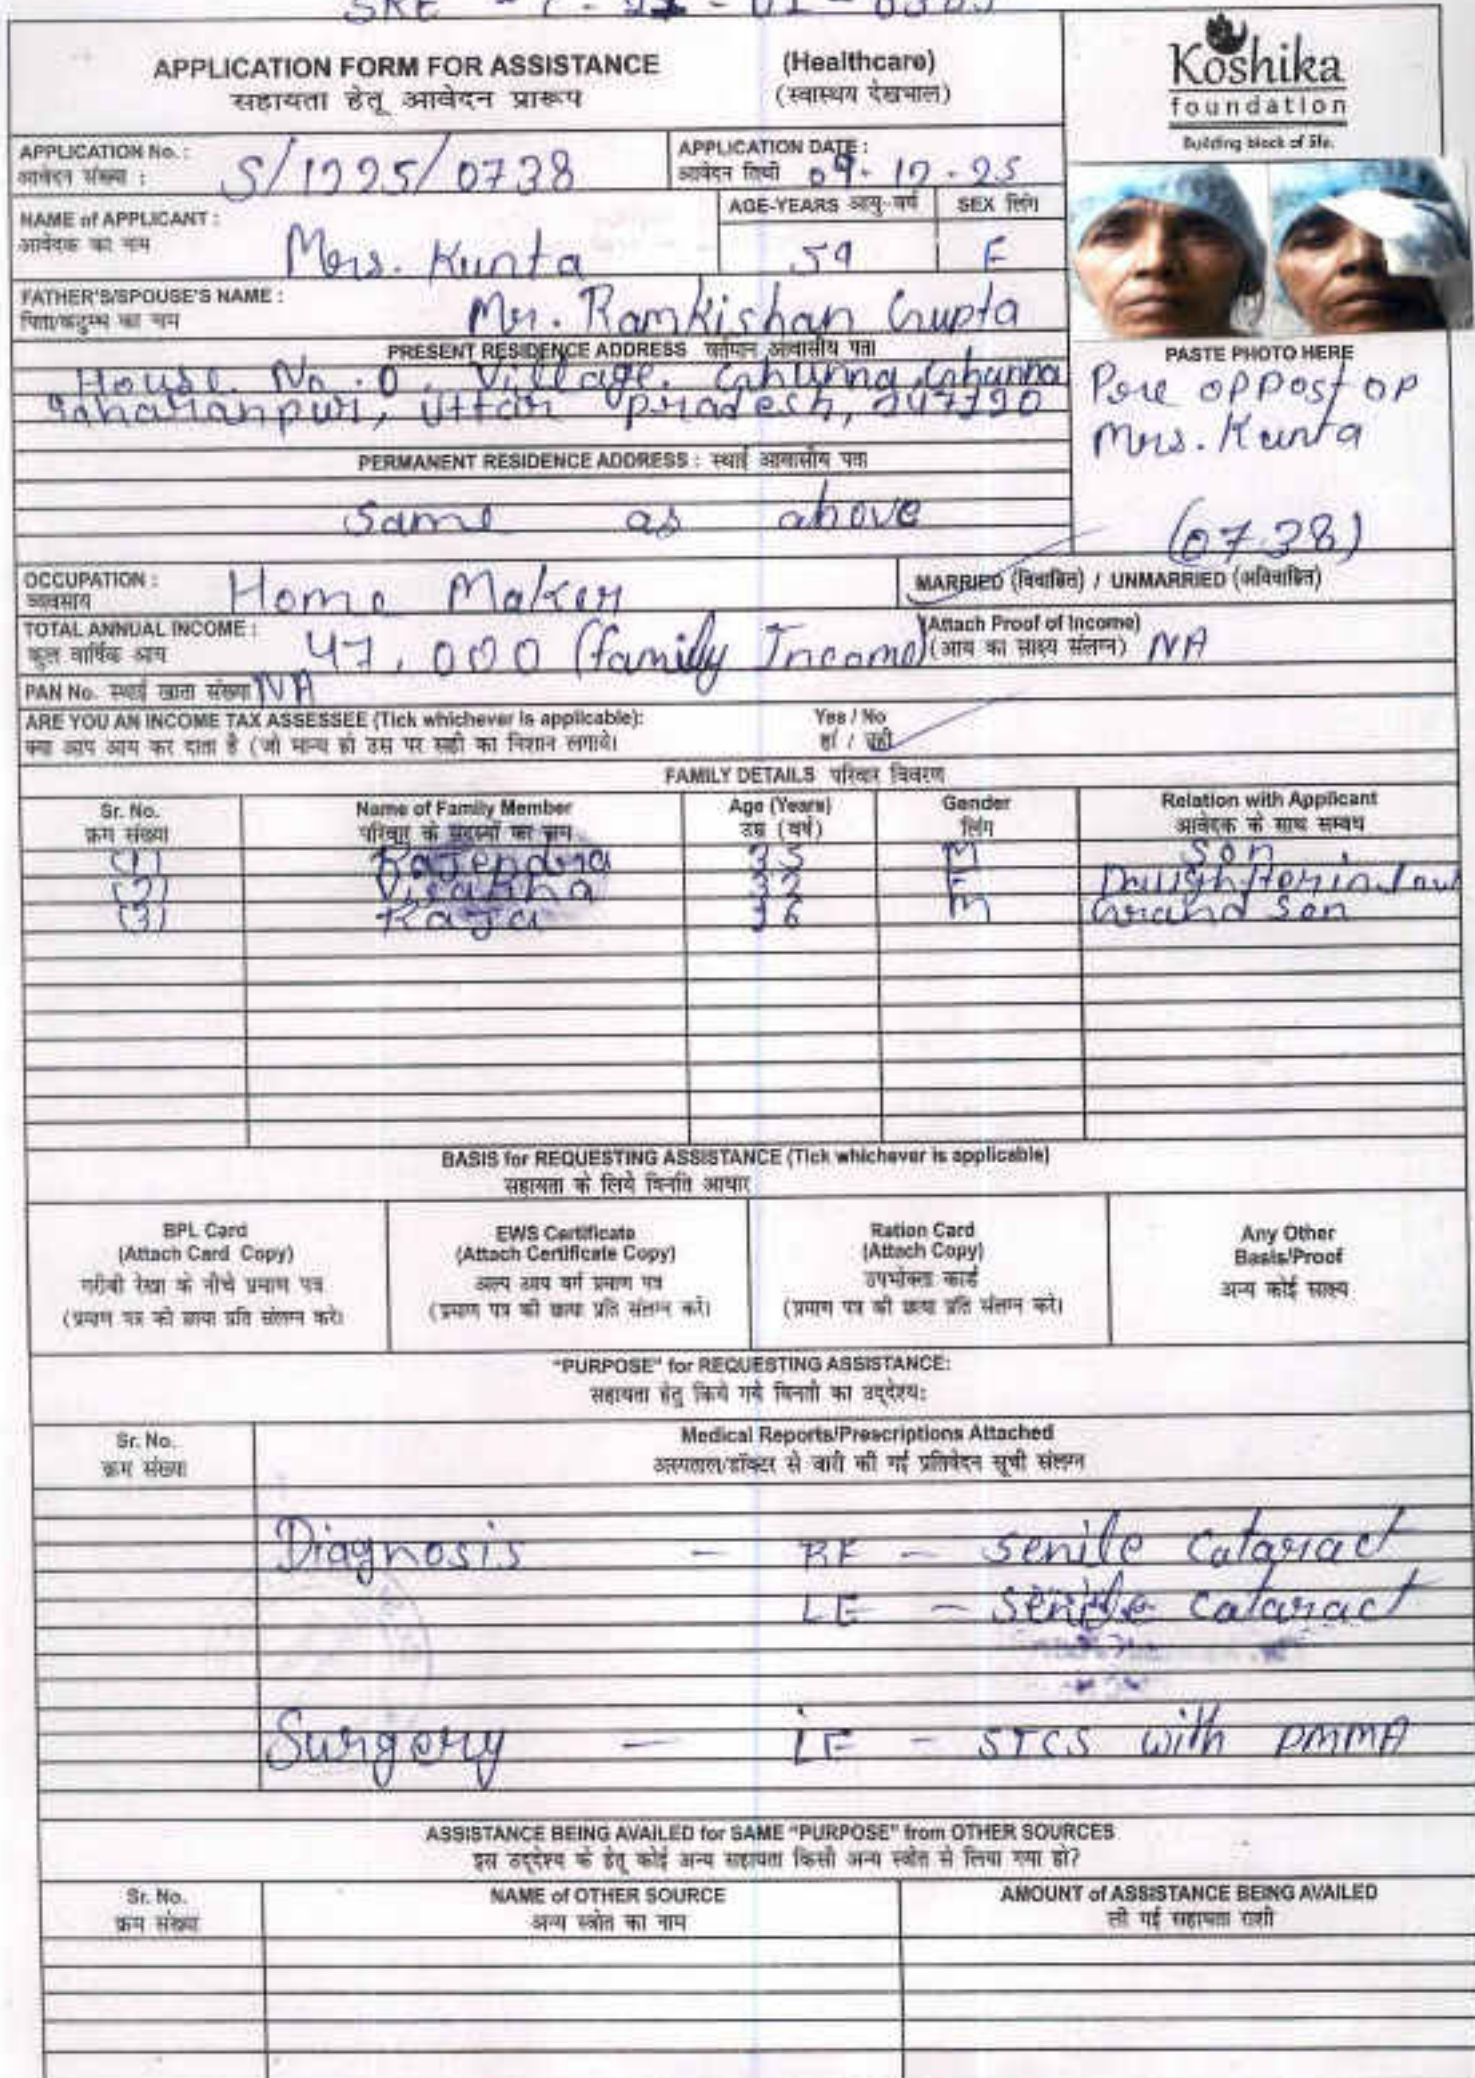 APPLICATION FORM FOR ASSISTANCE (Healthcare)
सहायता हेतू आवेदन प्रारूप (स्वास्थय देखभाल)
Koshika
foundation
Building block of life.
APPLICATION No.: S/1225/0738
आवेदन संख्या :
APPLICATION DATE: 09-12-25
आवेदन तिथी
NAME of APPLICANT: Mrs. Kunta
आवेदक का नाम
AGE-YEARS आयु-वर्ष 59
SEX लिंग F
FATHER'S/SPOUSE'S NAME: Mr. Ramkishan Gupta
पिता/कटुम्ब का नाम
PRESENT RESIDENCE ADDRESS वर्तमान आवासीय पता
House. No. 0, Village.
Saharanpur, Uttar Pradesh,
PERMANENT RESIDENCE ADDRESS : स्थाई आवासीय पता
Same as above
PASTE PHOTO HERE
Pre op Post op
Mrs. Kunta
(0738)
OCCUPATION: Home Maker
व्यवसाय
MARRIED (विवाहित) / UNMARRIED (अविवाहित)
TOTAL ANNUAL INCOME: 47,000 (family Income)
कुल वार्षिक आय
(Attach Proof of Income) NA
(आय का साक्ष्य संलग्न)
PAN No. स्थाई खाता संख्या NA
ARE YOU AN INCOME TAX ASSESSEE (Tick whichever is applicable): Yes / No
क्या आप आय कर दाता है (जो मान्य हो उस पर सही का निशान लगाये। हां / नही
FAMILY DETAILS परिवार विवरण
Sr. No. Name of Family Member Age (Years) Gender Relation with Applicant
क्रम संख्या परिवार के सदस्यों का नाम उम्र (वर्ष) लिंग आवेदक के साथ सम्बध
(1) Rajendra 35 M Son
(2) Visakha 32 F Daughterinlaw
(3) Raja 16 M Grand Son
BASIS for REQUESTING ASSISTANCE (Tick whichever is applicable)
सहायता के लिये विनति आधार
BPL Card
(Attach Card Copy)
गरीबी रेखा के नीचे प्रमाण पत्र
(प्रमाण पत्र की छाया प्रति संलग्न करे।
EWS Certificate
(Attach Certificate Copy)
अल्प आय वर्ग प्रमाण पत्र
(प्रमाण पत्र की छाया प्रति संलग्न करे।
Ration Card
(Attach Copy)
उपभोक्ता कार्ड
(प्रमाण पत्र की छाया प्रति संलग्न करे।
Any Other
Basis/Proof
अन्य कोई साक्ष्य
"PURPOSE" for REQUESTING ASSISTANCE:
सहायता हेतु किये गये विनती का उद्देश्य:
Sr. No. Medical Reports/Prescriptions Attached
क्रम संख्या अस्पताल/डॉक्टर से जारी की गई प्रतिवेदन सूची संलग्न
Diagnosis - RE - Senile Cataract
LE - Senile Cataract
Surgery - LE - SICS with PMMA
ASSISTANCE BEING AVAILED for SAME "PURPOSE" from OTHER SOURCES
इस उद्देश्य के हेतू कोई अन्य सहायता किसी अन्य स्त्रोत से लिया गया हो?
Sr. No. NAME of OTHER SOURCE AMOUNT of ASSISTANCE BEING AVAILED
क्रम संख्या अन्य स्त्रोत का नाम ली गई सहायता राशी